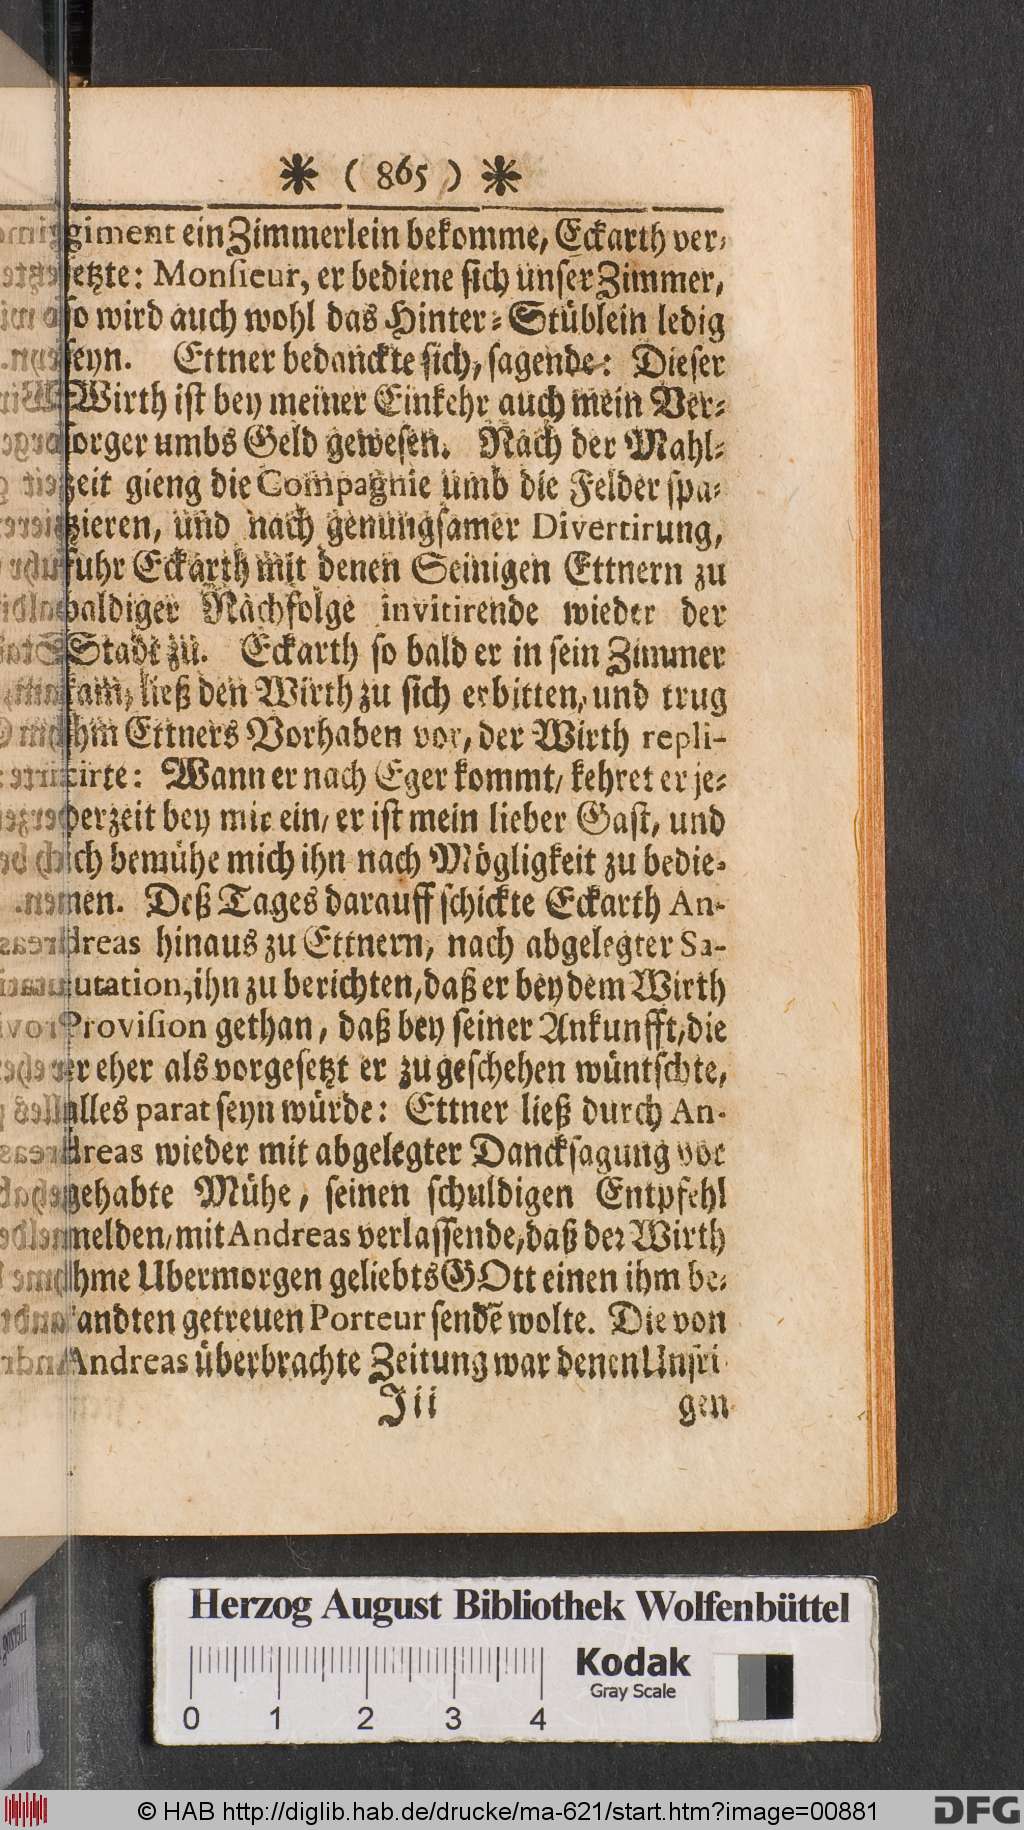 * ( 865 ) *
giment ein Zimmerlein bekomme, Eckarth ver-
setzte: Monsieur, er bediene sich unser Zimmer,
so wird auch wohl das Hinter-Stüblein ledig
seyn. Ettner bedanckte sich, sagende: Dieser
Wirth ist bey meiner Einkehr auch mein Ver-
sorger umbs Geld gewesen. Nach der Mahl-
zeit gieng die Compagnie umb die Felder spa-
zieren, und nach genungsamer Divertirung,
fuhr Eckarth mit denen Seinigen Ettnern zu
baldiger Nachfolge invitirende wieder der
Stadt zu. Eckarth so bald er in sein Zimmer
kam, ließ den Wirth zu sich erbitten, und trug
ihm Ettners Vorhaben vor, der Wirth repli-
cirte: Wann er nach Eger kommt, kehret er je-
derzeit bey mir ein, er ist mein lieber Gast, und
ich bemühe mich ihn nach Mögligkeit zu bedie-
nen. Deß Tages darauff schickte Eckarth An-
dreas hinaus zu Ettnern, nach abgelegter Sa-
lutation, ihn zu berichten, daß er bey dem Wirth
Provision gethan, daß bey seiner Ankunfft, die
er eher als vorgesetzt er zu geschehen wüntschte,
alles parat seyn würde: Ettner ließ durch An-
dreas wieder mit abgelegter Dancksagung vor
gehabte Mühe, seinen schuldigen Entpfehl
melden, mit Andreas verlassende, daß der Wirth
ihme Ubermorgen geliebts GOtt einen ihm be-
kandten getreuen Porteur sendē wolte. Die von
Andreas überbrachte Zeitung war denen Unsri
Iii gen
Herzog August Bibliothek Wolfenbüttel
Kodak
Gray Scale
0 1 2 3 4
© HAB http://diglib.hab.de/drucke/ma-621/start.htm?image=00881
DFG